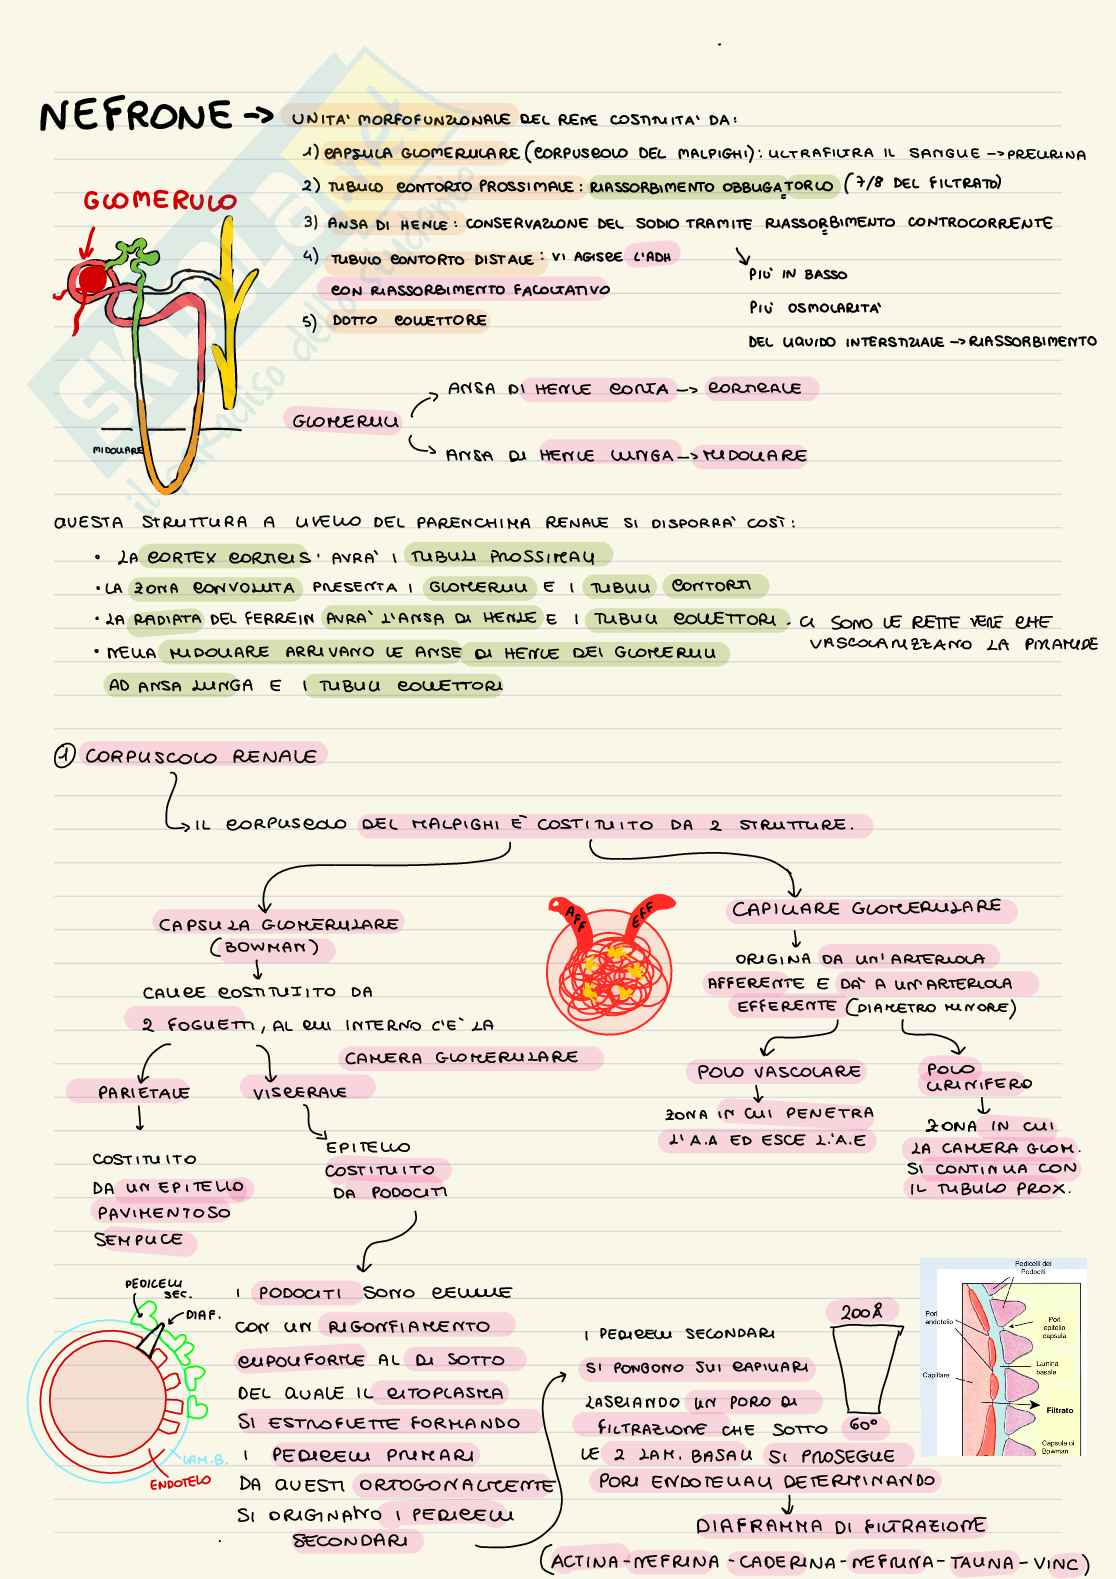 NEFRONE → UNITA' MORFOFUNZIONALE DEL RENE COSTITUITA' DA:
1) CAPSULA GLOMERULARE (CORPUSCOLO DEL MALPIGHI): ULTRAFILTRA IL SANGUE → PREURINA
2) TUBULO CONTORTO PROSSIMALE: RIASSORBIMENTO OBBLIGATORIO (7/8 DEL FILTRATO)
3) ANSA DI HENLE: CONSERVAZIONE DEL SODIO TRAMITE RIASSORBIMENTO CONTROCORRENTE
4) TUBULO CONTORTO DISTALE: VI AGISCE L'ADH
CON RIASSORBIMENTO FACOLTATIVO
5) DOTTO COLLETTORE
PIU' IN BASSO
PIU' OSMOLARITA'
DEL LIQUIDO INTERSTIZIALE → RIASSORBIMENTO
GLOMERULO
MIDOLLARE
GLOMERULI
ANSA DI HENLE CORTA → CORTICALE
ANSA DI HENLE LUNGA → MIDOLLARE
QUESTA STRUTTURA A LIVELLO DEL PARENCHIMA RENALE SI DISPORRA' COSÌ:
• LA CORTEX CORTICIS AVRA' I TUBULI PROSSIMALI
• LA ZONA CONVOLUTA PRESENTA I GLOMERULI E I TUBULI CONTORTI
• LA RADIATA DEL FERREIN AVRA' L'ANSA DI HENLE E I TUBULI COLLETTORI. CI SONO LE RETTE VERE CHE
VASCOLARIZZANO LA PIRAMIDE
• NELLA MIDOLLARE ARRIVANO LE ANSE DI HENLE DEI GLOMERULI
AD ANSA LUNGA E I TUBULI COLLETTORI
1 CORPUSCOLO RENALE
IL CORPUSCOLO DEL MALPIGHI È COSTITUITO DA 2 STRUTTURE.
CAPSULA GLOMERULARE
(BOWMAN)
CALICE COSTITUITO DA
2 FOGLIETTI, AL CUI INTERNO C'È LA
CAMERA GLOMERULARE
PARIETALE
COSTITUITO
DA UN EPITELLO
PAVIMENTOSO
SEMPLICE
VISCERALE
EPITELLO
COSTITUITO
DA PODOCITI
AFF
EFF
CAPILLARE GLOMERULARE
ORIGINA DA UN'ARTERIOLA
AFFERENTE E DA' A UN'ARTERIOLA
EFFERENTE (DIAMETRO MINORE)
POLO VASCOLARE
ZONA IN CUI PENETRA
L'A.A ED ESCE L'A.E
POLO
URINIFERO
ZONA IN CUI
LA CAMERA GLOM.
SI CONTINUA CON
IL TUBULO PROX.
PEDICELLI
SEC.
DIAF.
LAM.B.
ENDOTELO
I PODOCITI SONO CELLULE
CON UN RIGONFIAMENTO
CUPOLIFORME AL DI SOTTO
DEL QUALE IL CITOPLASMA
SI ESTROFLETTE FORMANDO
I PEDICELLI PRIMARI
DA QUESTI ORTOGONALMENTE
SI ORIGINANO I PEDICELLI
SECONDARI
I PEDICELLI SECONDARI
SI PONGONO SUI CAPILLARI
LASCIANDO UN PORO DI
FILTRAZIONE CHE SOTTO
LE 2 LAM. BASALI SI PROSEGUE
PORI ENDOTELIALI DETERMINANDO
DIAFRAMMA DI FILTRAZIONE
(ACTINA-NEFRINA-CADERINA-NEFRINA-TALINA-VINC)
200Å
60°
Pedicelli dei
Podociti
Pori
endotelio
Pori
epitelio
capsula
Lamina
basale
Capillare
Filtrato
Capsula di
Bowman
SKUOLA.net
il paradiso dello studente